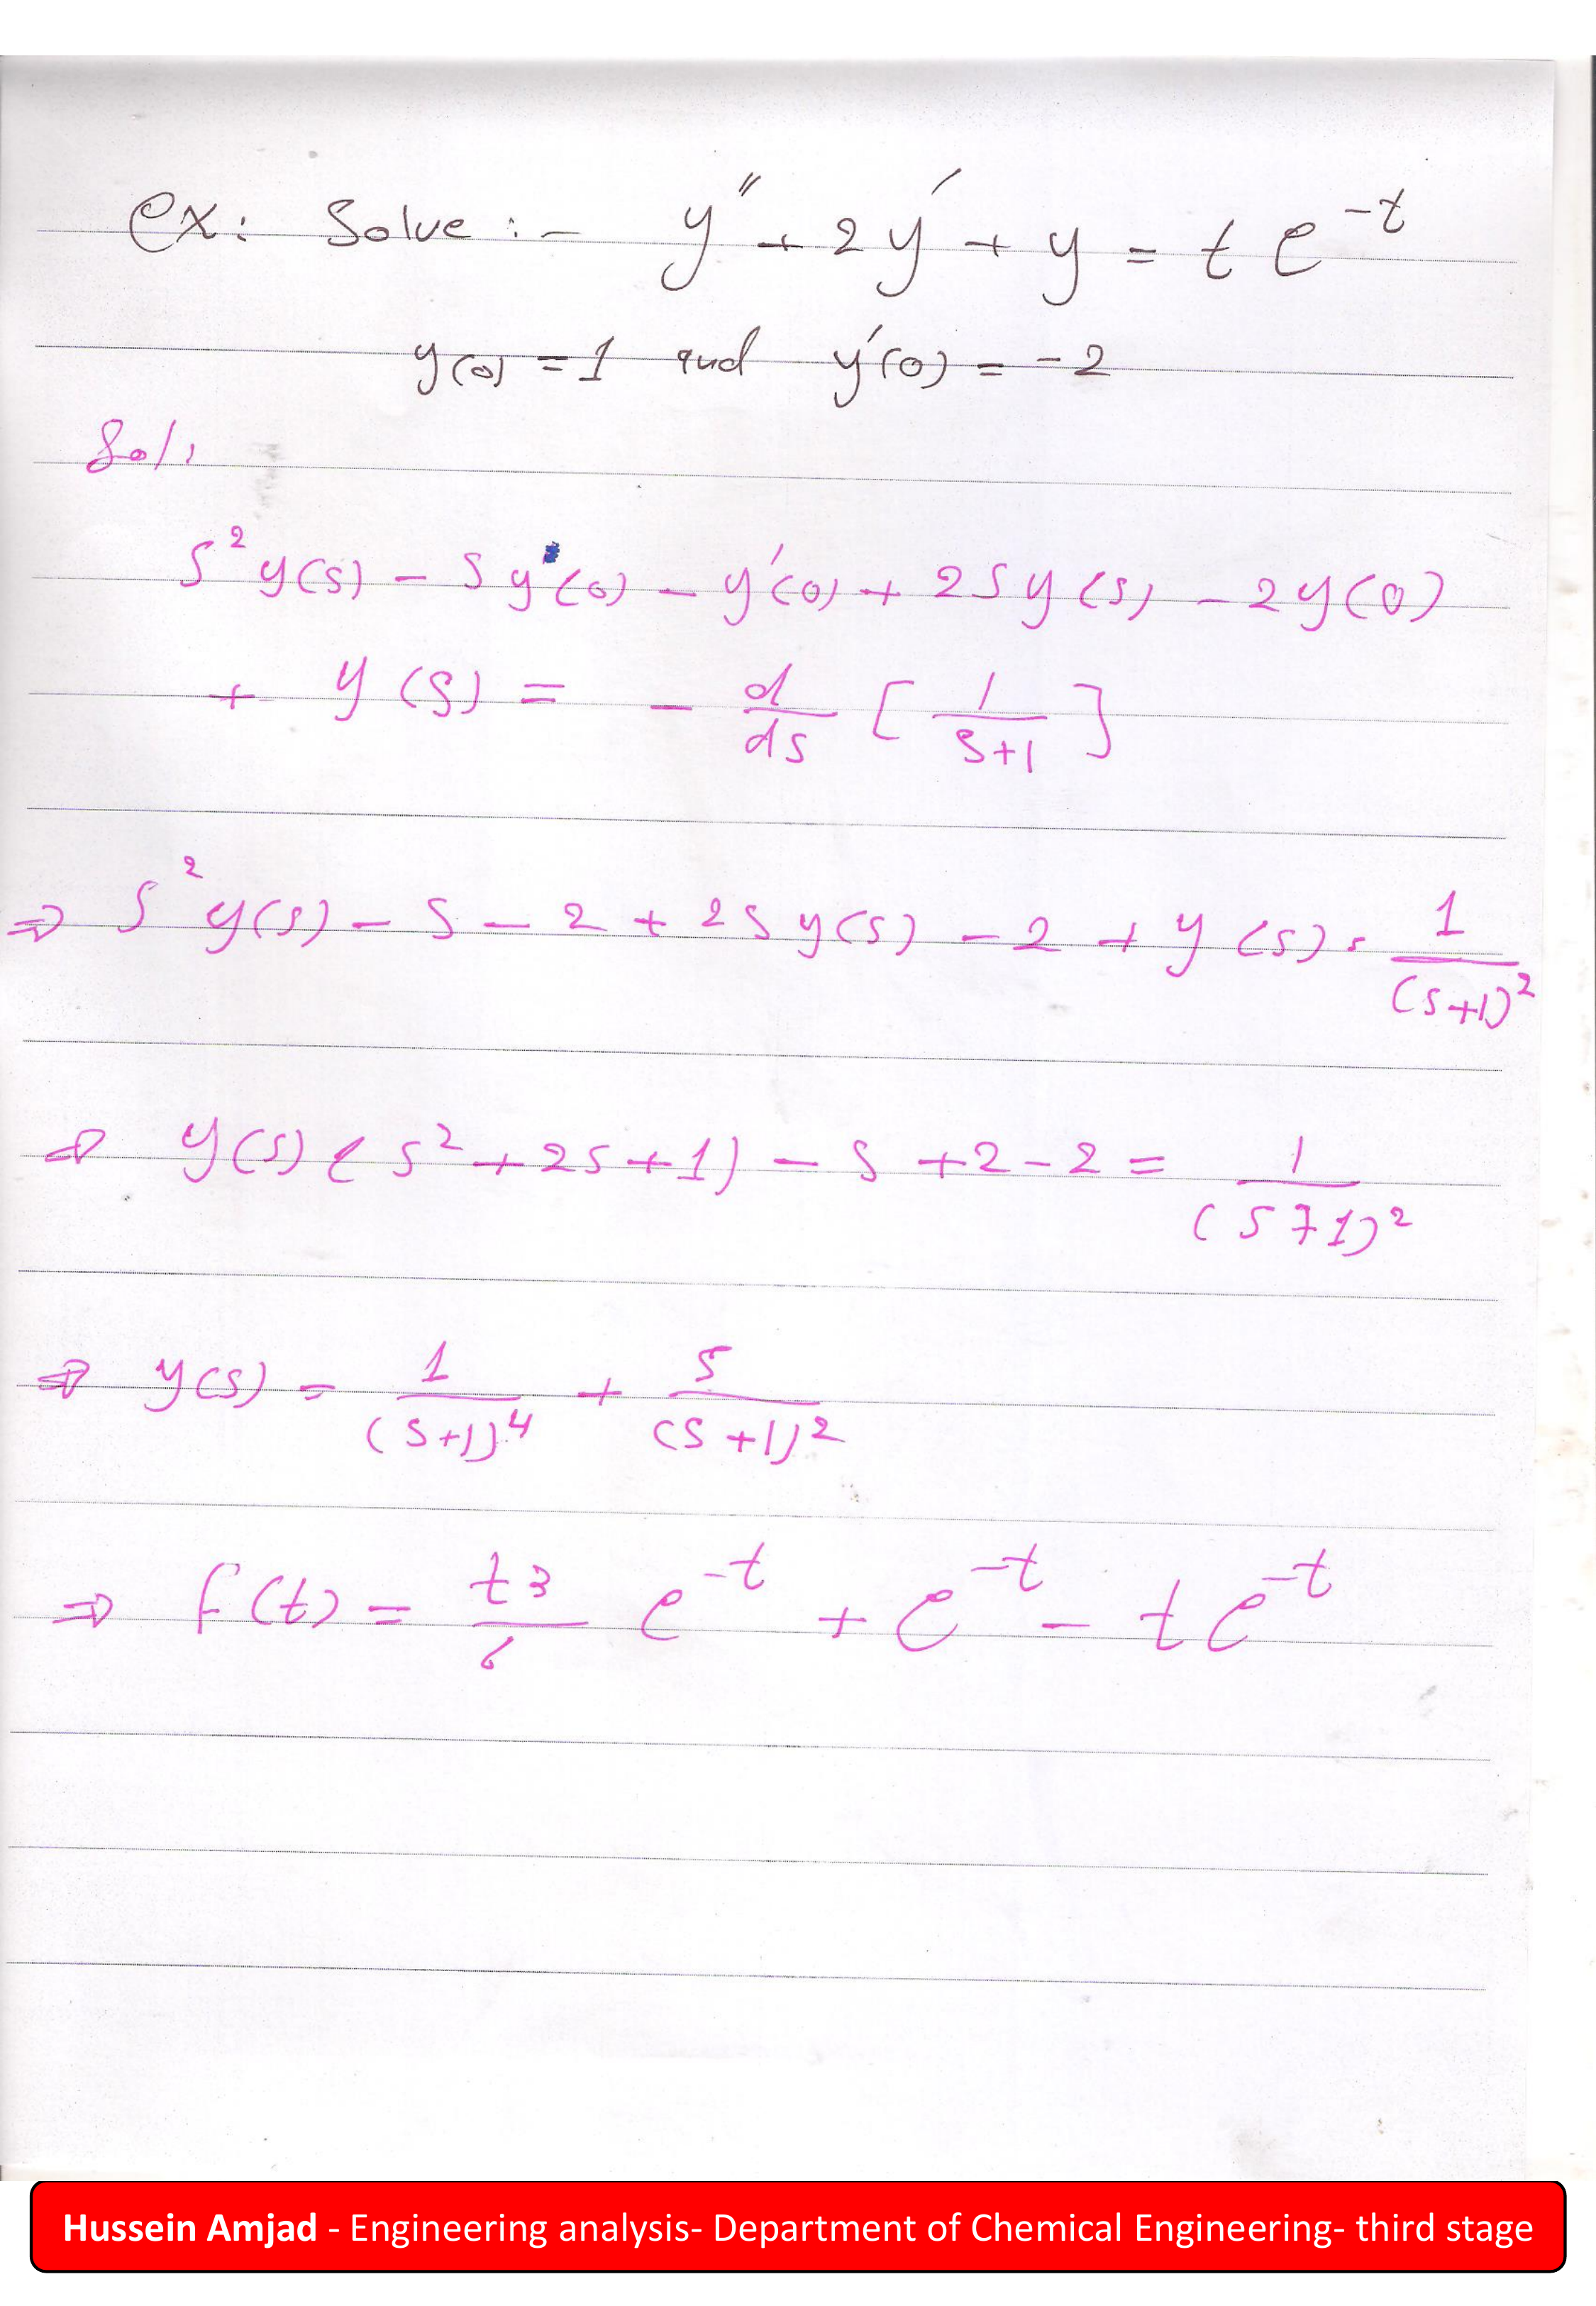 ex: Solve :- y'' + 2y' + y = t e^-t
y(0) = 1 and y'(0) = -2
Sol:
s^2 y(s) - s y(0) - y'(0) + 2s y(s) - 2y(0)
+ y(s) = - d/ds [ 1/(s+1) ]
⇒ s^2 y(s) - s - 2 + 2s y(s) - 2 + y(s) = 1/(s+1)^2
⇒ y(s) (s^2 + 2s + 1) - s + 2 - 2 = 1/(s+1)^2
⇒ y(s) = 1/(s+1)^4 + s/(s+1)^2
⇒ f(t) = t^3/6 e^-t + e^-t - t e^-t
Hussein Amjad - Engineering analysis- Department of Chemical Engineering- third stage